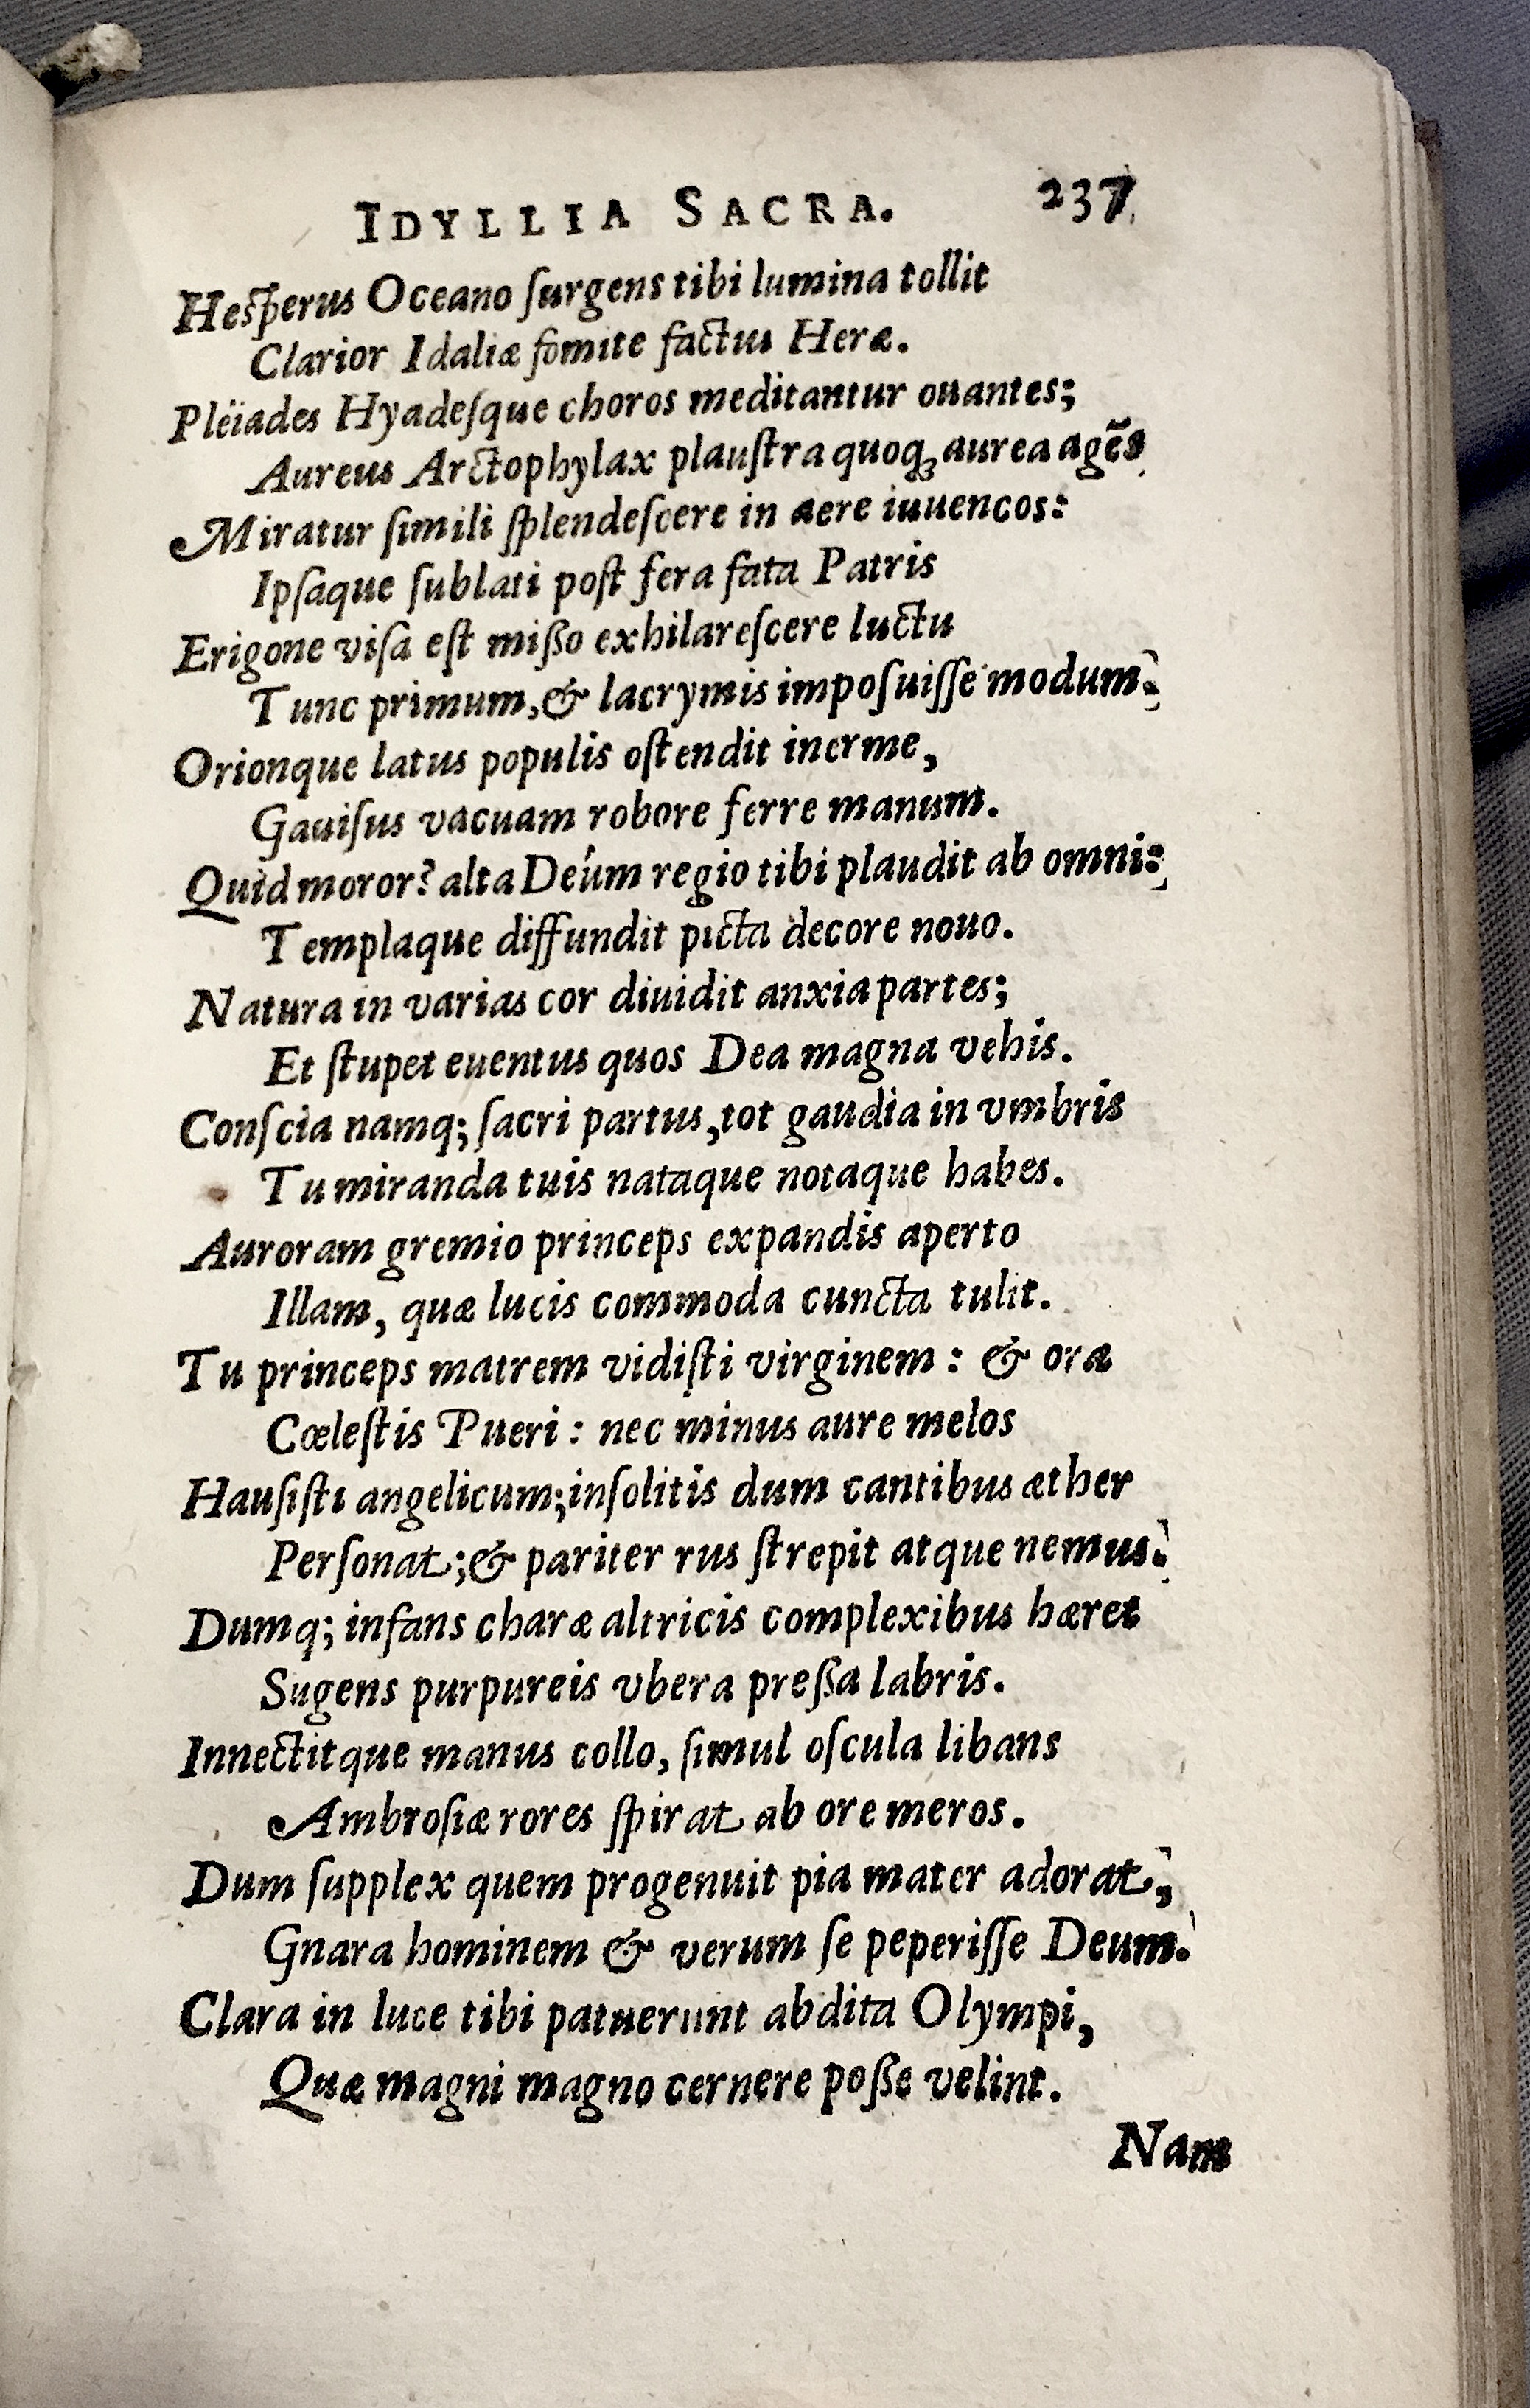 IDYLLIA SACRA. 237
Heſperus Oceano ſurgens tibi lumina tollit
Clarior Idaliæ fomite factus Heræ.
Plëiades Hyadeſque choros meditantur ouantes;
Aureus Arctophylax plauſtra quoq; aurea agẽs
Miratur ſimili ſplendeſcere in aere iuuencos:
Ipſaque ſublati poſt fera fata Patris
Erigone viſa eſt mißo exhilareſcere luctu
Tunc primum, & lacrymis impoſuiſſe modum.
Orionque latus populis oſtendit inerme,
Gauiſus vacuam robore ferre manum.
Quid moror? alta Deúm regio tibi plaudit ab omni:
Templaque diffundit picta decore nouo.
Natura in varias cor diuidit anxia partes;
Et ſtupet euentus quos Dea magna vehis.
Conſcia namq; ſacri partus, tot gaudia in vmbris
Tu miranda tuis nataque notaque habes.
Auroram gremio princeps expandis aperto
Illam, quæ lucis commoda cuncta tulit.
Tu princeps matrem vidiſti virginem: & ora
Cœleſtis Pueri: nec minus aure melos
Hauſiſti angelicum; inſolitis dum cantibus æther
Perſonat; & pariter rus ſtrepit atque nemus.
Dumq; infans charæ altricis complexibus hæret
Sugens purpureis vbera preßa labris.
Innectitque manus collo, ſimul oſcula libans
Ambroſiæ rores ſpirat ab ore meros.
Dum ſupplex quem progenuit pia mater adorat,
Gnara hominem & verum ſe peperiſſe Deum.
Clara in luce tibi patuerunt abdita Olympi,
Quæ magni magno cernere poße velint.
Nam